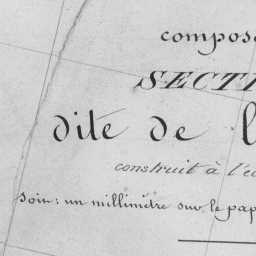 compos
SECTI
dite de l
construit à l'éc
soit : un millimètre sur le pap